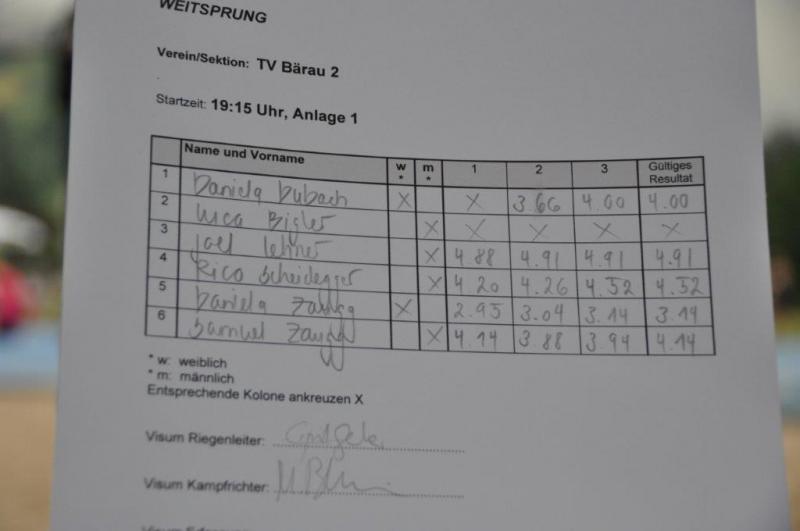 WEITSPRUNG
Verein/Sektion: TV Bärau 2
Startzeit: 19:15 Uhr, Anlage 1
Name und Vorname w * m * 1 2 3 Gültiges Resultat
1 Daniela Dubach X X 3.66 4.00 4.00
2 Luca Bigler X X X X X
3 Joel Lehner X 4.88 4.91 4.91 4.91
4 Rico Scheidegger X 4.20 4.26 4.52 4.52
5 Daniela Zaugg X 2.95 3.04 3.14 3.14
6 Samuel Zaugg X 4.14 3.88 3.94 4.14
* w: weiblich
* m: männlich
Entsprechende Kolone ankreuzen X
Visum Riegenleiter:
Visum Kampfrichter: